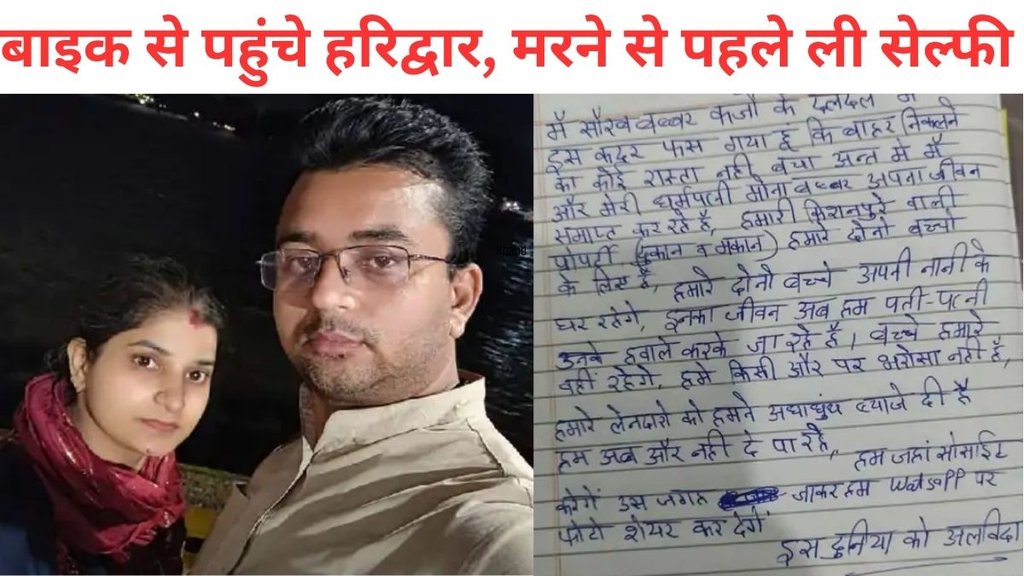 बाइक से पहुंचे हरिद्वार, मरने से पहले ली सेल्फी
मैं सौरव बब्बर कर्जो के दलदल में
इस कदर फस गया हूं कि बाहर निकलने
का कोई रास्ता नही बचा अन्त मे मैं
और मेरी धर्मपत्नी मोना बब्बर अपना जीवन
समाप्त कर रहे हैं, हमारी किशनपुरे वाली
प्रोपर्टी (दुकान व मकान) हमारे दोनो बच्चो
के लिए है, हमारे दोनो बच्चे अपनी नानी के
घर रहेंगे, इनका जीवन अब हम पती-पत्नी
उनके हवाले करके जा रहे है। बच्चे हमारे
वहीं रहेंगे, हमे किसी और पर भरोसा नही है,
हमारे लेनदारो को हमने अंधाधुंध ब्याजे दी है
हम अब और नही दे पा रहे, हम जहां सोसाईट
करेगें उस जगह जाकर हम Watsapp पर
फोटो शेयर कर देगें
इस दुनिया को अलविदा